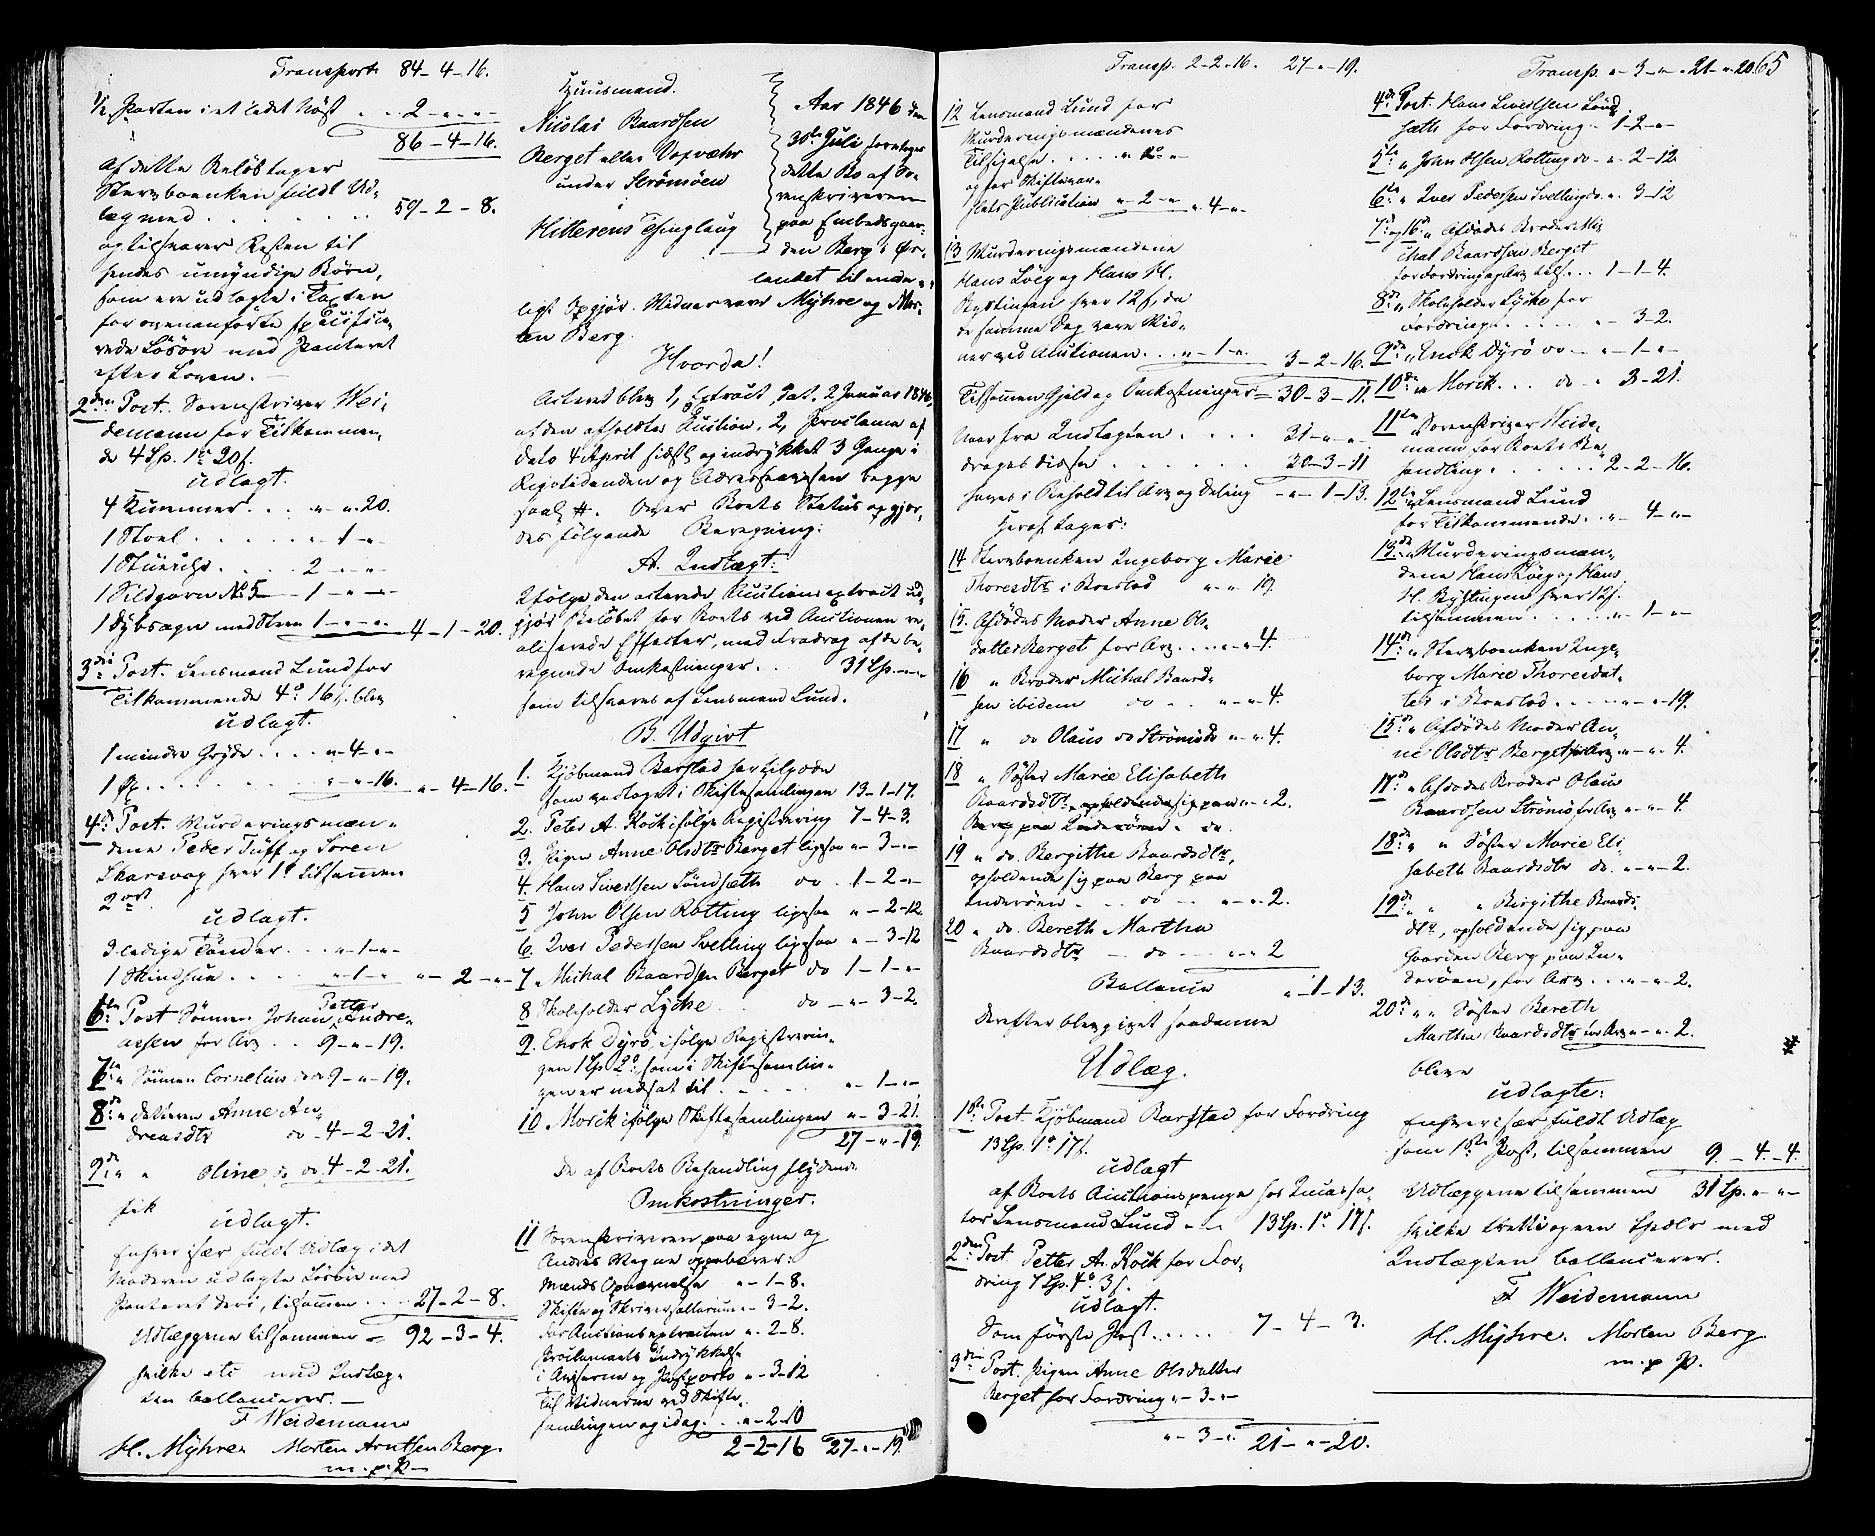 Transport 84-4-16.
1/2 Parten i et ledet Nøst . . . 2 - " - "
86-4-16.
Af dette Beløb tager
Stervboenken fuldt Ud-
læg med . . . . . . 59-2-8.
og tilsvarer Resten til
hendes umyndige Børn,
som ere udlagte i Boets
for ovenanførte specifice-
rede Løsøre med Panteret
efter Loven. -
2den Post. Sorenskriver Wei-
demann for Tilkommen-
de 4 Sp. 1 o 20 s.
udlagt.
4 Kummer . . . " - " 20.
1 Stoel . . . . . " - 1 - "
1 Stueuhr . . . . 2 - " - "
1 Sildgarn No 5 - 1 - " - "
1 Dybsagn med Steen 1 - " - " 4-1-20.
3die Post. Lensmand Lund for
Tilkommende 4 o 16 s. blev
udlagt.
1 mindre Gryde . . . " - 4 - "
1 Øx . . . . . . " - " - 16. " - 4-16.
4de Post. Vurderingsmæn-
dene Peder Tuff og Søren
Skarsvog hver 1 o tilsammen
2 ort
udlagt.
3 ledige Tønder . . . " - 1 - "
1 Skindhue . . . . " - 1 - " " - 2 - "
6te Post Sønnen Johan Petter Andre-
assen for Arv . . 9 - " - 19.
7de " Sønnen Cornelius do do 9 - " - 19.
8de " Datteren Anne An-
dreasdtr do - 4-2-21.
9de " " Oline do do 4-2-21.
fik udlagt.
Enhver især fuldt Udlæg i det
Moderen udlagte Løsøre med
Panteret deri, tilsammen . . . 27-2-8.
Udlæggene tilsammen - 92-3-4.
hvilke etc med Indtæg-
ten ballancerer. -
F Weidemann
H. Myhre. Morten Arntsen Berg.
m. p. P.
Huusmand.
Nicolai Baardsen
Berget eller Vopvæhr
under Strømøen
Hitterens Thinglaug
Aar 1846 den
30te Juli foretoges
dette Bo af So-
renskriveren
paa Embedsgaar-
den Berg i Ør-
landet til ende-
ligt Opgjør. Vidner vare Myhre og Mor-
ten Berg.
Hvorda!
Acteret blev 1, Extract, dat. 2 Januar 1846,
af den afholdte Auction. 2, Proclama af
dato 4 April sidstl. og indrykket 3 Gange i
Rigstidenden og Adresseavisen begge
saal. #. Over Boets Status opgjor-
des følgende Beregning:
A. Indtægt:
Ifølge den acterede Auctions extract ud-
gjør Beløbet for Boets ved Auctionen re-
aliserede Effecter, med Fradrag af de be-
regnede Omkostninger . . 31 Sp. - " - "
som tilsvares af Lensmand Lund.
B. Udgivt
1. Kjøbmand Barstad har tilgode
som vedtaget i Skiftesamlingen 13-1-17.
2. Peter A. Kock ifølge Registrering 7-4-3.
3. Pigen Anne Olsdtr Berget ligesaa " - 3 - "
4. Hans Sivertsen Sundsæth do . 1-2 - "
5 John Olsen Rotting ligesaa " - 2-12.
6. Iver Pedersen Svelling ligesaa " - 3-12
7. Michal Baardsen Berget do 1-1 - "
8 Skoleholder Lycke . . do - " - 3-2.
9. Enok Dyrø, ifølge Registrerin-
gen 1 Sp. 2 o, som i Skiftesamlin-
gen er nedsat til . - . . " - 1 - "
10. Morck ifølge Skiftesamlingen " - 3-21.
27 - " - 19.
De af Boets Behandling flydende
Omkostninger.
11 Sorenskriveren paa egne og
Andres Vegne oppebærer:
Mænds Opnævnelse " - 1-8.
Skifte og Skriversallarium " - 3-2.
For Auctionsextracten " - 2-8.
Proclamaets Indrykkelse
i Aviserne og Postporto " - 3-12
Til Vidnerne ved Skifte-
samlingen og idag . . . " - 2-10
2-2-16 27 - " - 19.
Transp. 2-2-16. 27 - " - 19.
12 Lensmand Lund for
Vurderingsmændenes
Tilsigelse . . . . . " 2 - "
og for Skiftevar-
slets Publication " - 2 - " " - 4 - "
13 Vurderingsmændene
Hans Løeg og Hans H.
Rystingen hver 12 s, da
de samme Dag vare Vid-
ner ved Auctionen . . . " - 1 - " 3-2-16.
Tilsammen Gjeld og Omkostninger = 30-3-11.
Naar fra Indtægten . . . . 31 - " - "
drages disse . . . . . . 30-3-11
haves i Behold til Arv og Deling - " - 1-13.
Heraf tages:
14 Stervboenken Ingeborg Marie
Thoresdtr i Boestad " - " 19.
15. Afdødes Moder Anne Ols-
datter Berget for Arv . . . " - " 4.
16 " Broder Michal Baard-
sen ibidem do . . " - " - 4.
17 " do Olaus do Strømsø " - " 4.
18 " Søster Marie Elisabeth
Baardsdtr, opholdende sig paa " - " 2.
Berg paa Inderøen . do .
19 " do. Bergithe Baardsdtr,
opholdende sig paa Berg paa
Inderøen . . . do - . . " - " 2.
20 " do. Bereth Martha
Baardsdtr - do - . . " - " 2
Ballance " - 1-13.
Derefter blev givet saadanne
Udlæg.
1ste Post. Kjøbmand Barstad for Fordring
13 Sp. 1 o 17 s.
udlagt
af Boets Auctionspenge hos Incassa-
tor Lensmand Lund " - " 13 Sp. 1 o 17 s.
2den Post. Petter A. Kock for For-
dring 7 Sp. 4 o 3 s.
udlagt.
Som første Post. . . . . 7-4-3.
3die Post. Pigen Anne Olsdatter
Berget for Fordring " - 3 - "
" - 3 - " 21 - " - 20.
Transp. " - 3 - " " 21 - " - 20. 65
4de Post. Hans Sivertsen Sund-
sæth for Fordring . 1-2 - "
5te " John Olsen Rotting do - " - 2-12.
6te " Iver Pedersen Svelling do " - 3-12
7de og 16de " Afdødes Broder Mi-
chal Baardsen Berget
for Fordring og Arv tils. . . 1-1-4.
8de " Skoleholder Lycke for
Fordring . . . . . " - 3-2.
9de " Enok Dyrø do - " - 1 - "
10de " Morck . . . do - " 3-21.
11te " Sorenskriver Weide-
mann for Boets Be-
handling . . . . . . 2-2-16.
12te " Lensmand Lund
for Tilkommende . . " - 4 - "
13de " Vurderingsmæn-
dene Hans Løeg og Hans
H. Rystingen hver 12 s.
tilsammen . . . . . " - 1 - "
14de " Stervboenken Inge-
borg Marie Thoresdat-
ter i Boestad . . . " - " 19.
15de " Afdødes Moder An-
ne Olsdtr Berget for Arv " - " 4.
17de " Afdødes Broder Olaus
Baardsen Strømsø for Arv " - " 4.
18de " " Søster Marie Eli-
sabeth Baardsdtr do . " - " - 2.
19de " " " Birgithe Baards-
dtr, opholdende sig paa
Gaarden Berg paa In-
derøen, for Arv . . . " - " 2.
20de " " Søster Bereth
Martha Baardsdtr for Arv " - " 2.
bleve
udlagte:
Enhver især fuldt Udlæg
som 1ste Post, tilsammen 9-4-4.
Udlæggene tilsammen 31 Sp. " - "
hvilke tretti og een Spdlr med
Indtægten ballancerer.
F Weidemann
H. Myhre. Morten Berg.
m. p P.